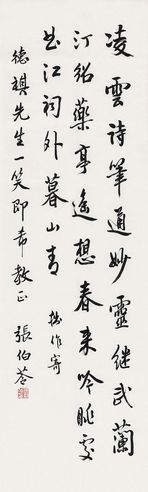 凌雲詩筆通妙靈繼武蘭
汀紹藥亭遙想春來吟眺處
曲江祠外暮山青 拙作寄
德祺先生一笑即希教正 張伯苓